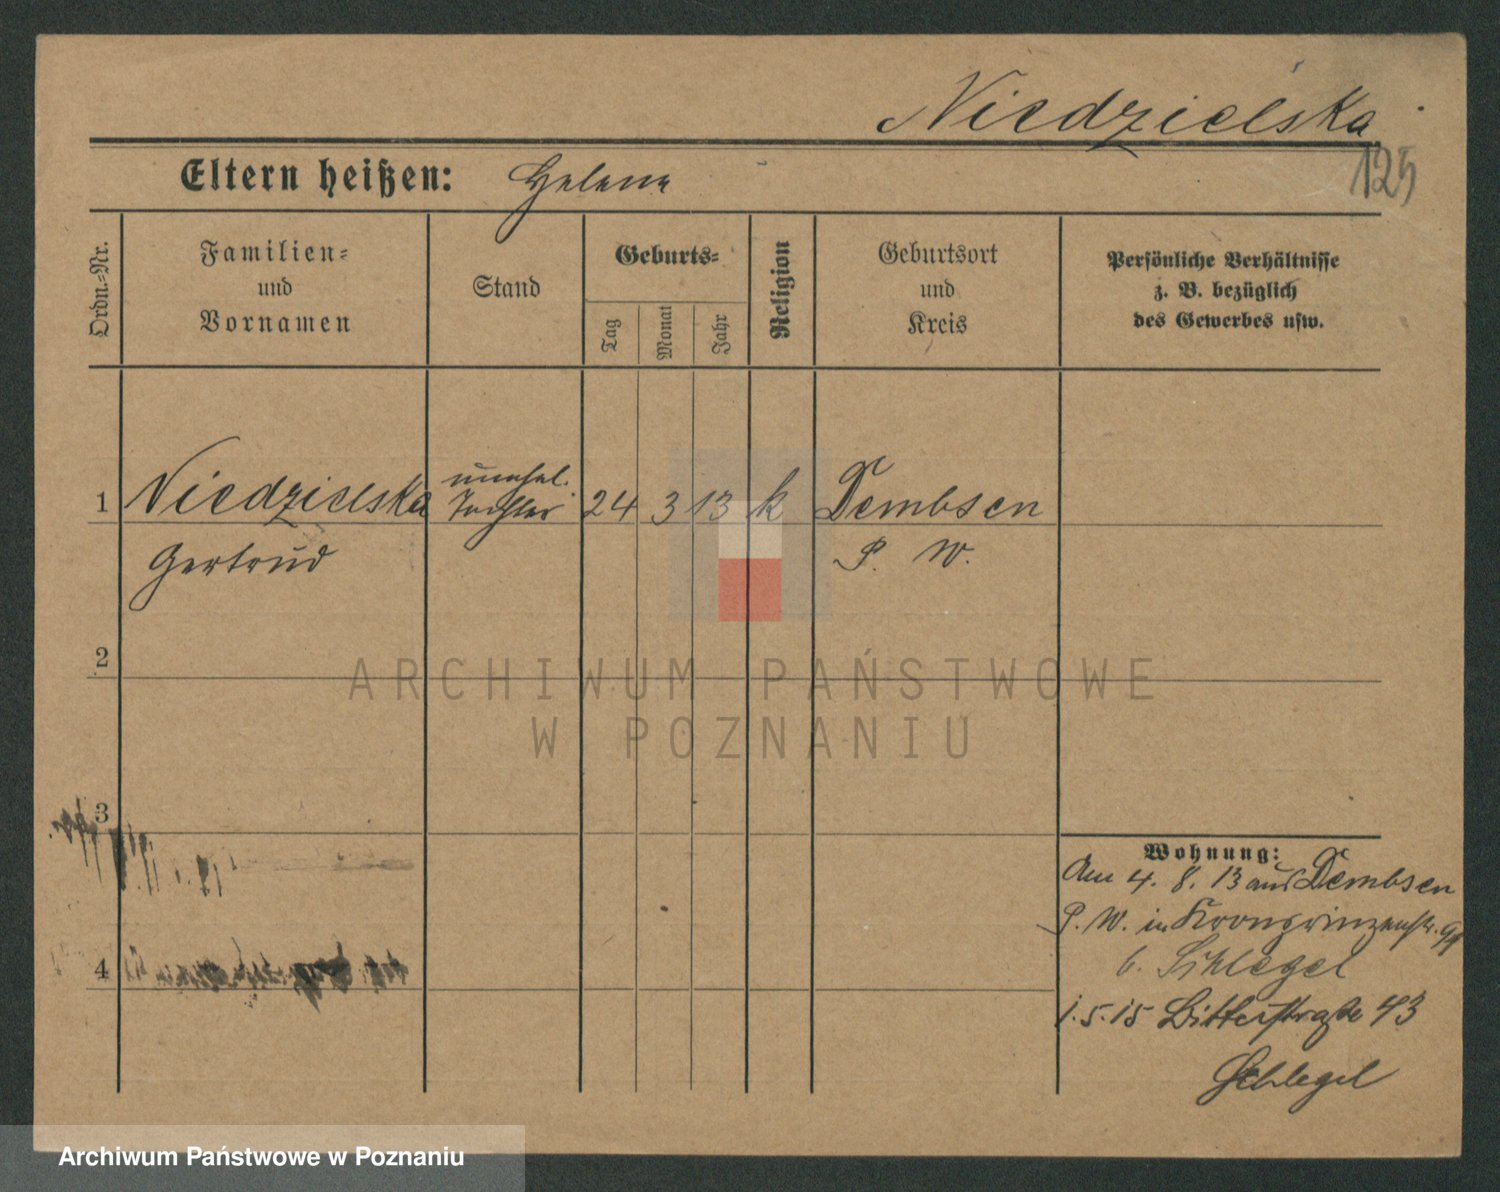 Niedzielska
125
Eltern heißen: Helene
Ordn.-Nr.
Familien-
und
Vornamen
Stand
Geburts-
Tag
Monat
Jahr
Religion
Geburtsort
und
Kreis
Persönliche Verhältnisse
z. B. bezüglich
des Gewerbes usw.
1 Niedzielska unehel. Tochter 24 3 13 k Dembsen
Gertrud P. W.
2
ARCHIWUM PAŃSTWOWE
W POZNANIU
3
4
Wohnung:
Am 4. 8. 13 aus Dembsen
P. W. in Kronprinzenstr.
b. Schlegel
1.5.15 Bitterstraße 43
Schlegel
Archiwum Państwowe w Poznaniu